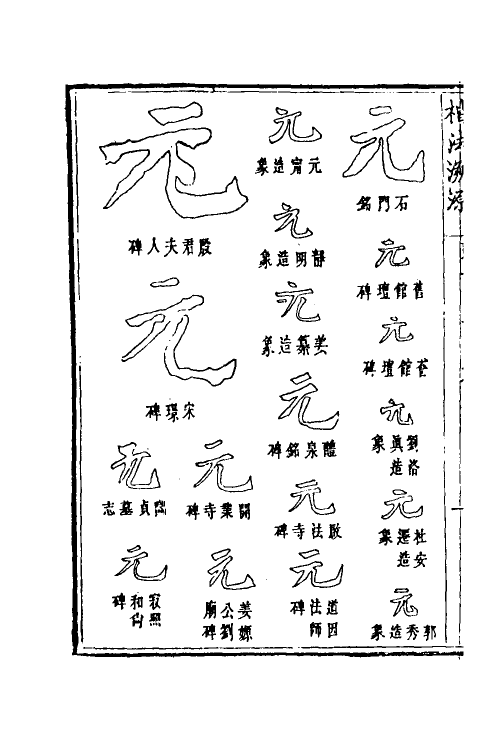 楷法溯源
元
石門銘
元
舊館壇碑
元
舊館壇碑
元
劉洛真造象
元
杜遷安造象
元
郭秀造象
元
元甯造象
元
靜明造象
元
姜纂造象
元
醴泉銘碑
元
啟法寺碑
元
道因法師碑
元
殷君夫人碑
元
宋璟碑
元
開業寺碑
元
姜嫄公劉廟碑
元
貞墓志
元
寂照和尚碑